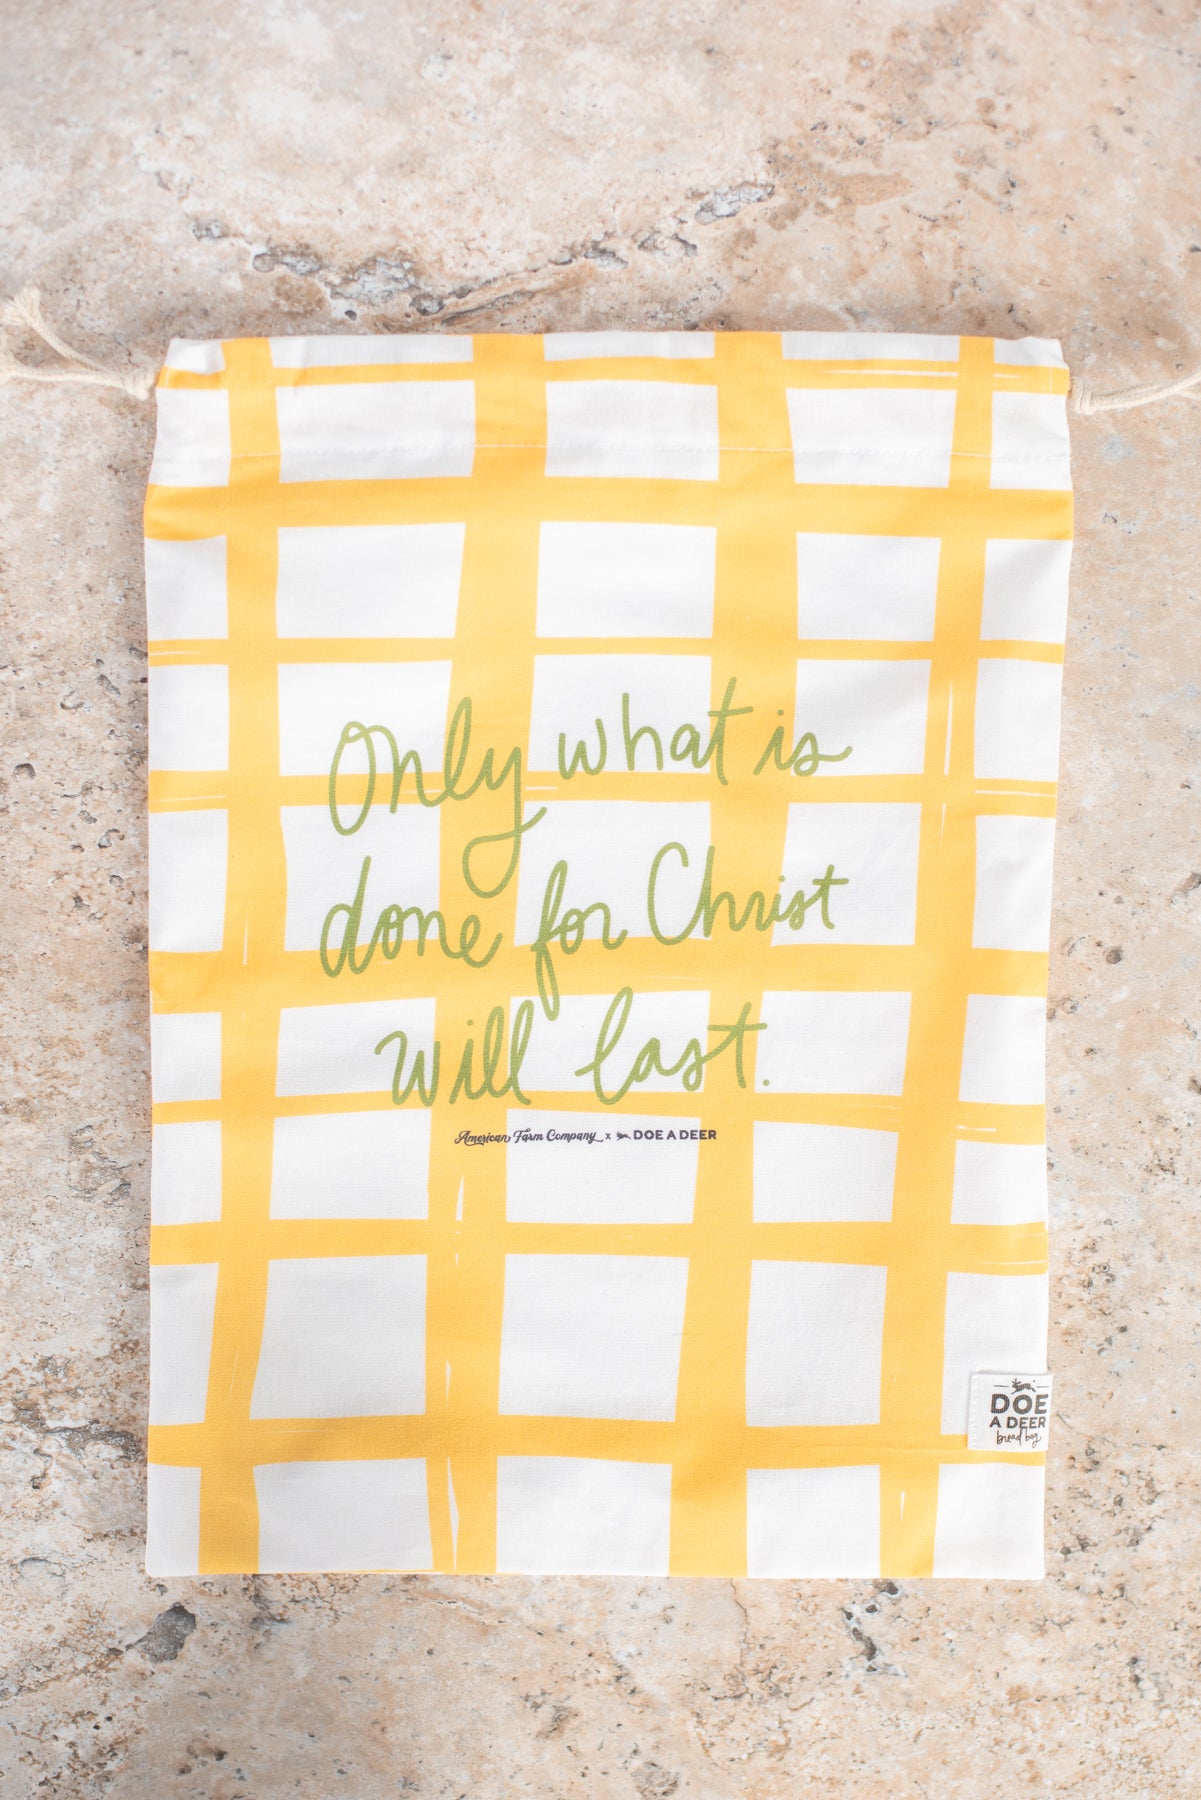 Only what is
done for Christ
will last.
American Farm Company x DOE A DEER
DOE
A DEER
bread bag